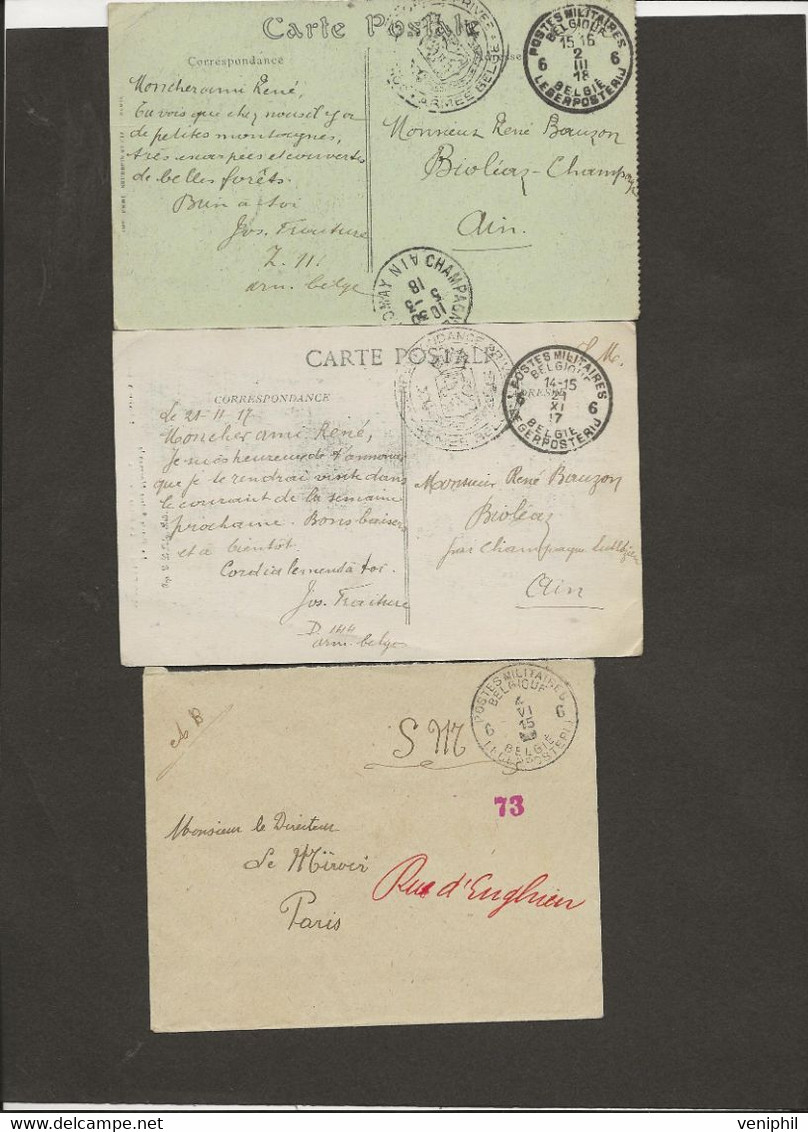 Carte Postale
Correspondance
POSTES MILITAIRES
BELGIQUE
15-16
2
III
18
6 6
BELGIE
LEGERPOSTERIJ
ARMÉE BELGE
Mon cher ami René,
Tu vois que chez nous il y a
de petites montagnes,
très escarpées et couvertes
de belles forêts.
Bien à toi
Jos. Traiture
Z. 111
arm. belge
Monsieur René Bauzon
Bioléaz-Champagne
Ain.
CHAMPAGNE
AIN
10 30
5-3
18
CARTE POSTALE
S. M.
CORRESPONDANCE
POSTES MILITAIRES
BELGIQUE
14-15
21
XI
17
6 6
BELGIE
LEGERPOSTERIJ
Le 21-11-17.
Mon cher ami René,
Je suis heureux de t'annoncer
que je te rendrai visite dans
le courant de la semaine
prochaine. Bons baisers
et à bientôt.
Cordialement à toi.
Jos. Traiture
D. 144
arm. belge
Monsieur René Bauzon
Bioléaz
par Champagne
Ain
POSTES MILITAIRES
BELGIQUE
4
VI
15
6 6
BELGIE
LEGERPOSTERIJ
S M
73
Monsieur le Directeur
Le Miroir
Rue d'Enghien
Paris
veniphil